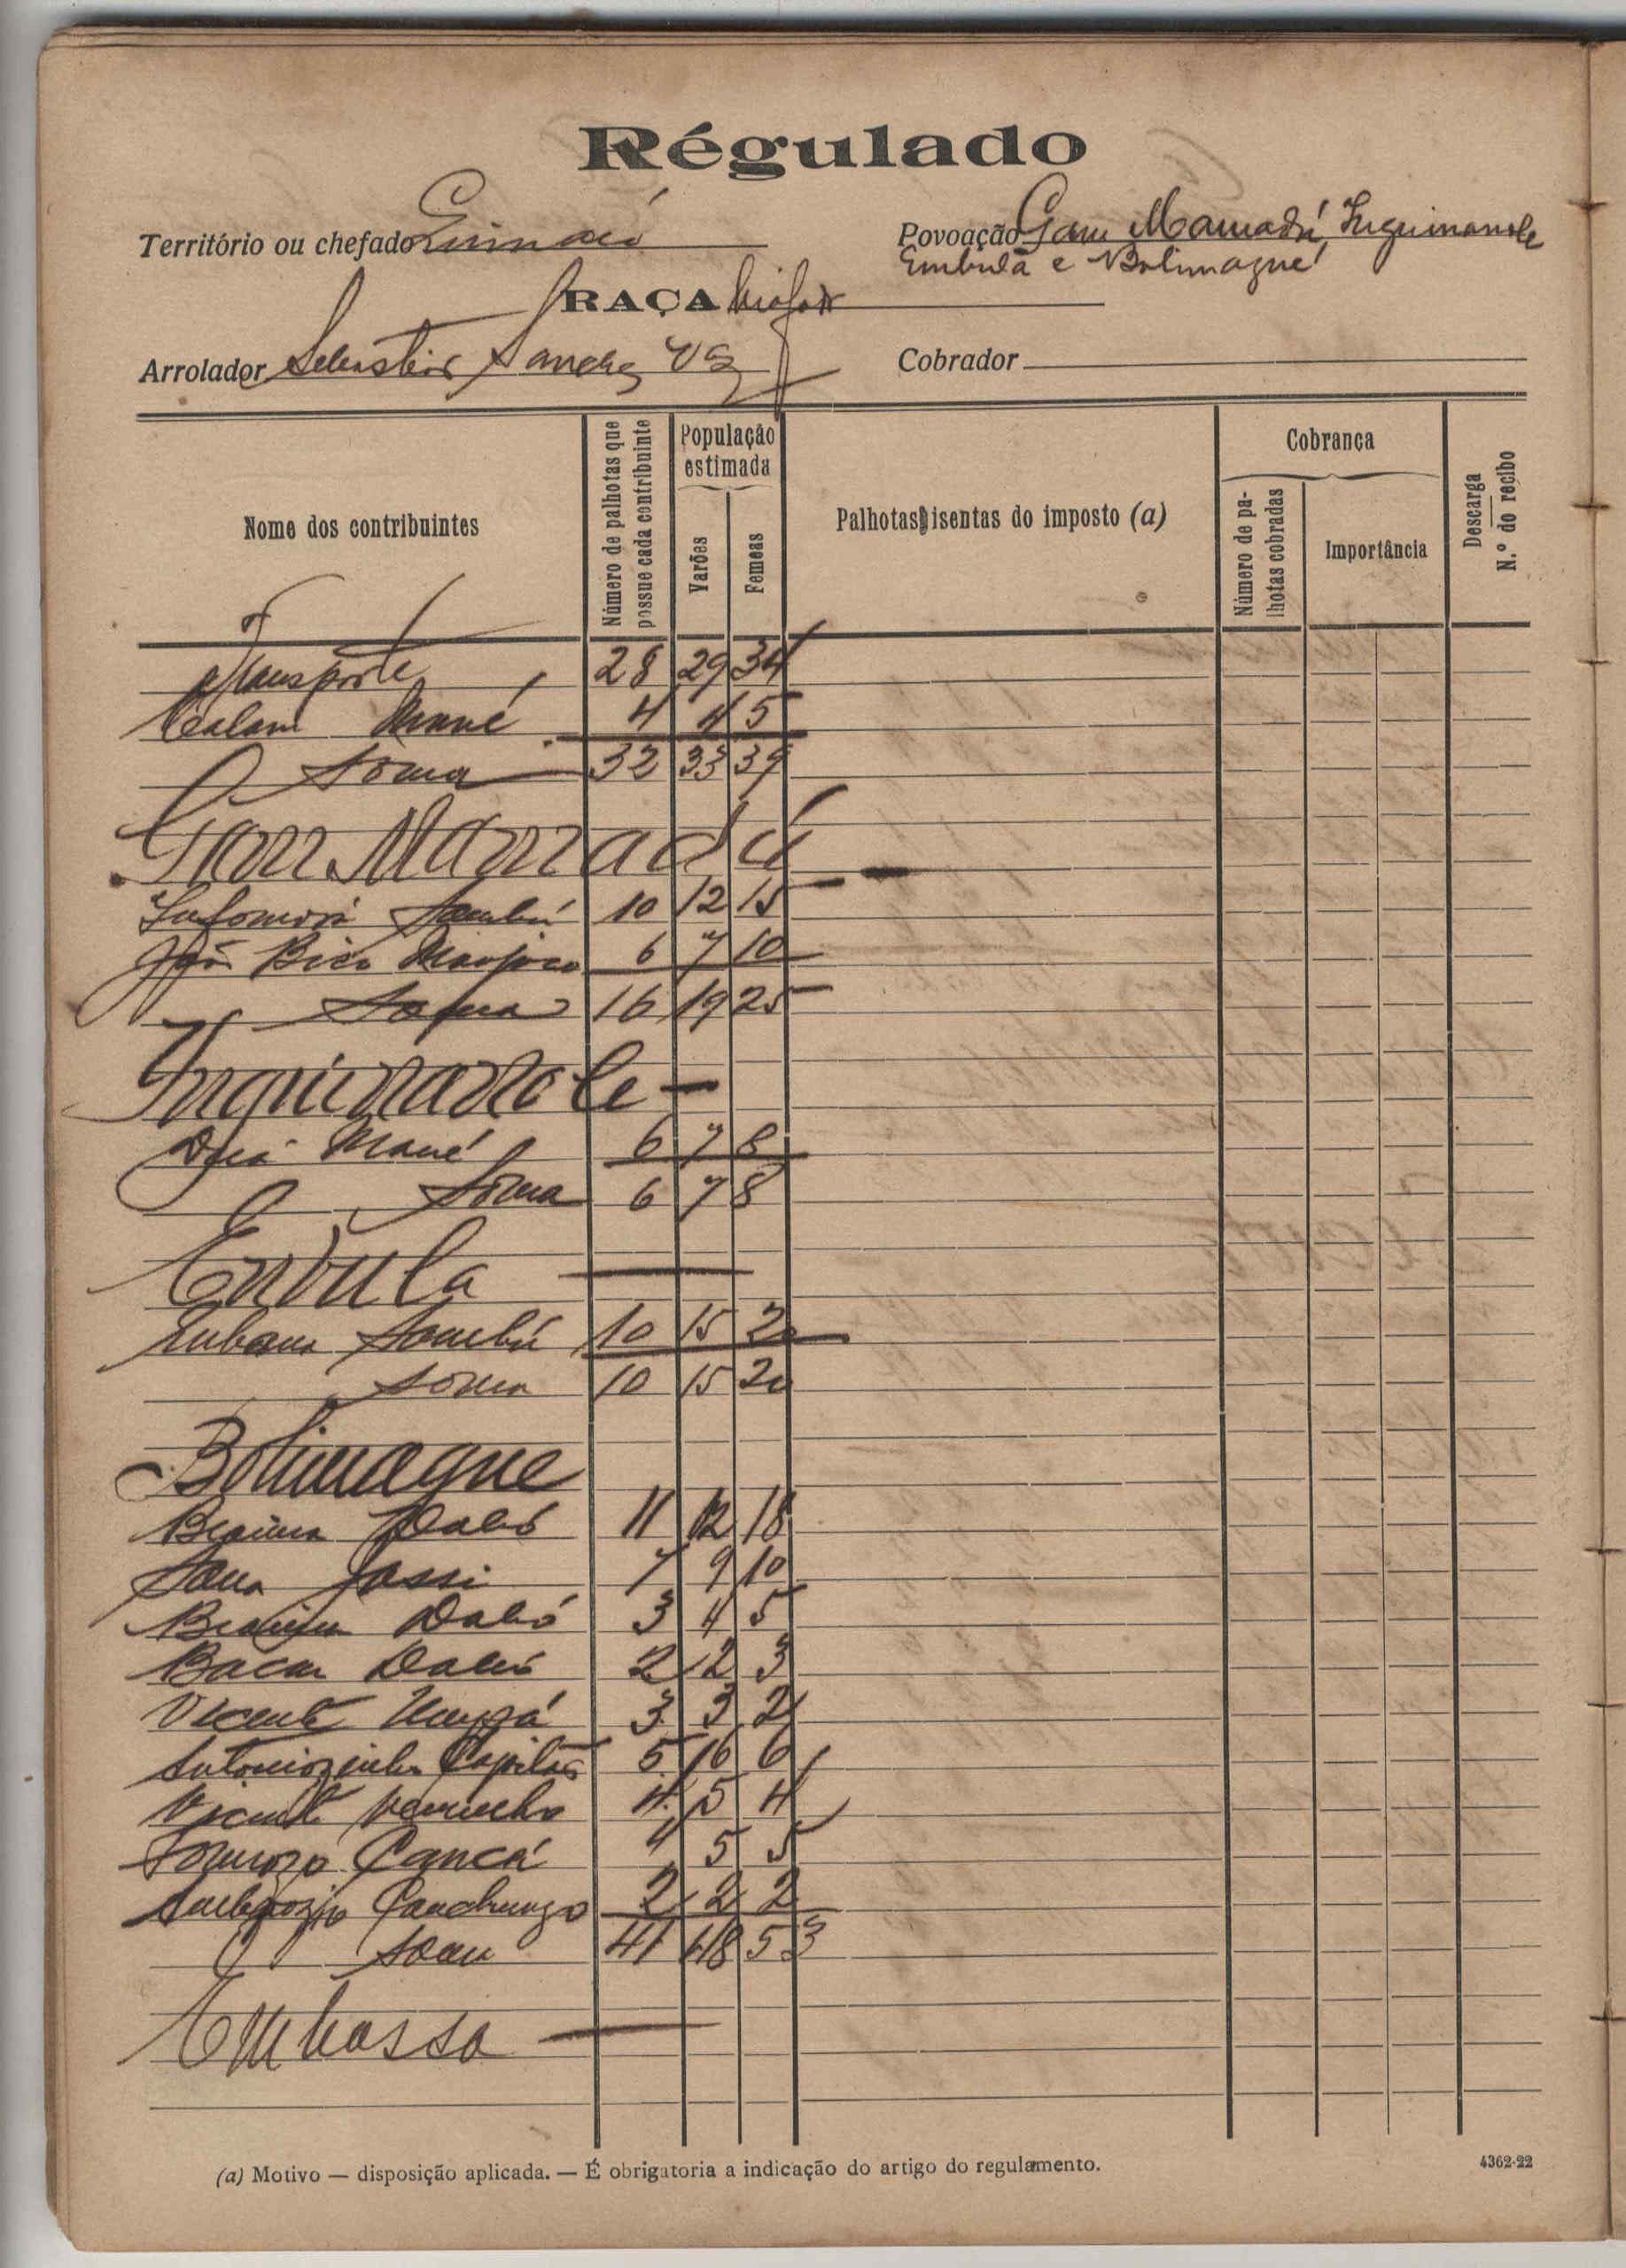 Régulado
Território ou chefado
Povoação Gam Mamadú, Inquimanole
Embulã e Bolimagué
RAÇA
Arrolador Sanches Vaz
Cobrador
Nome dos contribuintes
Número de palhotas que possue cada contribuinte
População estimada
Varões
Femeas
Palhotas isentas do imposto (a)
Cobrança
Número de palhotas cobradas
Importância
Descarga
N.º do recibo
Transporte 28 29 34
Mané 4 4 5
Soma 32 33 39
Gam Mamadú
Sambú 10 12 15
Bico Manjaco 6 7 10
Soma 16 19 25
Inquinanole
Mané 6 7 8
Soma 6 7 8
Embula
Sambú 10 15 20
Soma 10 15 20
Bolimague
Braima Dabó 11 12 18
Sana Jassi 7 9 10
Braima Dabó 3 4 5
Bacar Dabó 2 2 3
Vicente 3 3 2
Antoniozinho Capitão 5 6 6
Vicente Vermelho 4 5 4
Cancá 4 5 5
Ambrozio Canchungo 2 2 2
Soma 41 48 53
Embassa
(a) Motivo — disposição aplicada. — É obrigatoria a indicação do artigo do regulamento.
4362-22